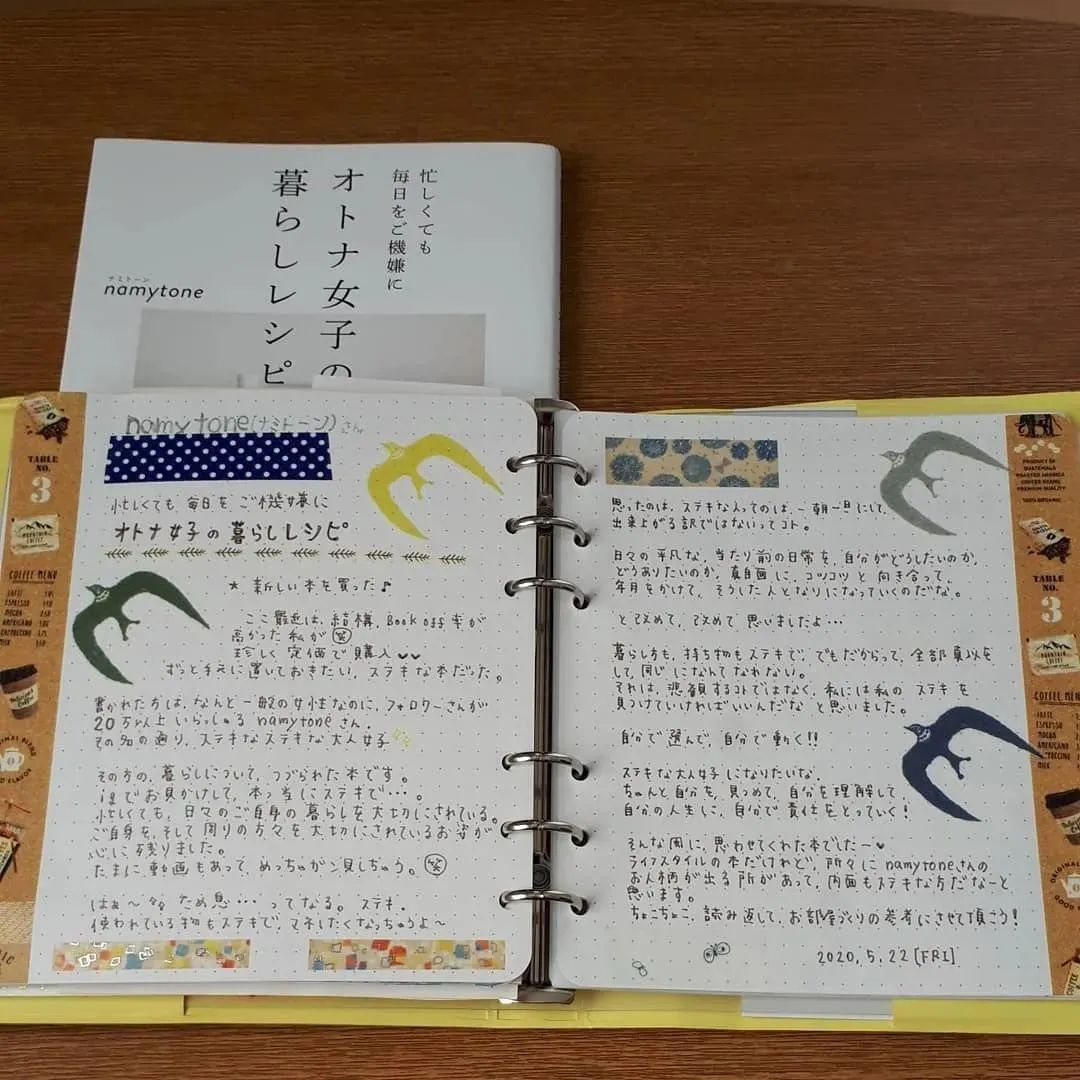 忙しくても
毎日をご機嫌に
オトナ女子の
暮らしレシピ
ナミトーン
namytone
namytone(ナミトーン)さん
忙しくても 毎日を ご機嫌に
オトナ女子の暮らしレシピ
★ 新しい本を買った♪
ここ最近は、結構、Book off率が
高かった私が(笑)
珍しく定価で購入
ずっと手元に置いておきたい、ステキな本だった。
書かれた方は、なんと一般の女性なのに、フォロワーさんが
20万以上いらっしゃる namytoneさん.
その名の通り、ステキなステキな大人女子
その方の、暮らしについて、つづられた本です。
igでお見かけして、本っ当にステキで…。
忙しくても、日々のご自身の暮らしを大切にされている。
ご自身を、そして周りの方々を大切にされているお姿が
心に残りました。
たまに動画もあって、めっちゃガン見しちゃう。(笑)
はぁ〜 ため息… ってなる。ステキ.
使われている物もステキで、マネしたくなっちゃうよ〜
TABLE
NO.
3
MOUNTAIN
COFFEE
COFFEE MENU
LATTE
ESPRESSO
MOCHA
AMERICANO
CAPPUCCINO
MILK
Delicious
Coffee
思ったのは、ステキな人ってのは、一朝一旦にして、
出来上がる訳ではないってコト。
日々の平凡な、当たり前の日常を、自分がどうしたいのか、
どうありたいのか、真面目に、コツコツと向き合って、
年月をかけて、そうした人となりになっていくのだな。
と改めて、改めて思いましたよ…
暮らし方も、持ち物もステキで、でもだからって、全部真似を
して、同じになんてなれない。
それは、悲観するコトではなく、私には私の ステキを
見つけていければいいんだなと思いました。
自分で選んで、自分で動く!!
ステキな大人女子になりたいな.
ちゃんと自分を、見つめて、自分を理解して、
自分の人生に、自分で責任をとっていく!
そんな風に、思わせてくれた本でしたー♥
ライフスタイルの本だけれど、所々に namytoneさんの
お人柄が出る所があって、内面もステキな方だなーと
思います。
ちょこちょこ、読み返して、お部屋づくりの参考にさせて頂こう!
2020, 5, 22 [FRI]
PRODUCT OF
GUATEMALA
ROASTED ARABICA
COFFEE BEANS
PREMIUM QUALITY
100% ORGANIC
TABLE
NO.
3
MOUNTAIN
COFFEE
COFFEE MENU
LATTE
ESPRESSO
MOCHA
AMERICANO
CAPPUCCINO
MILK
Delicious
Coffee